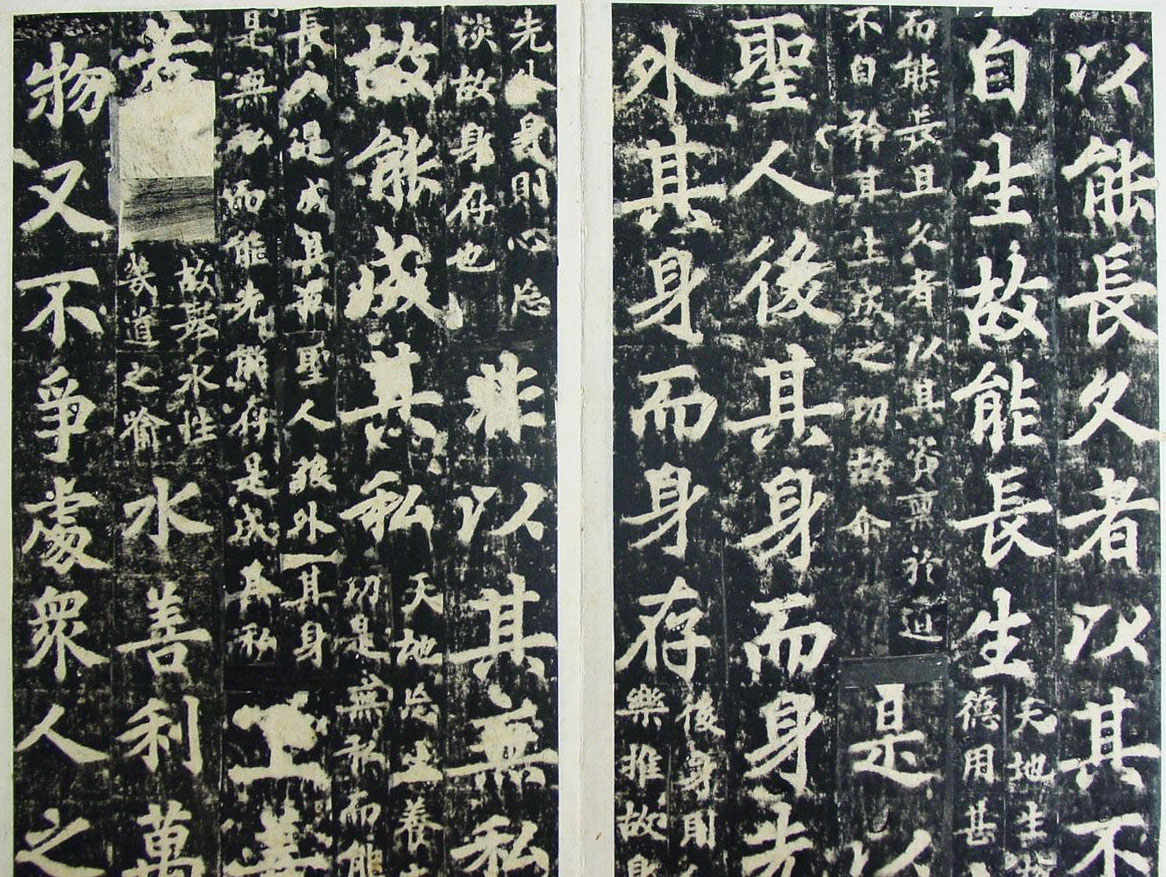 以能長久者以其不
自生故能長生
天地生
德用甚
而能長且久者以其資稟於道
不自矜其生成之功故今
是以
聖人後其身而身先
外其身而身存
後身則
樂推故身
先人是則心忘
淡故身存也
非以其無私
故能成其私
天地忘生養
功是無私而能
長人是成其私聖人後外其身
是無私而能先能存是成其私
上善
若
故舉水性
幾道之喻
水善利萬
物又不爭處衆人之